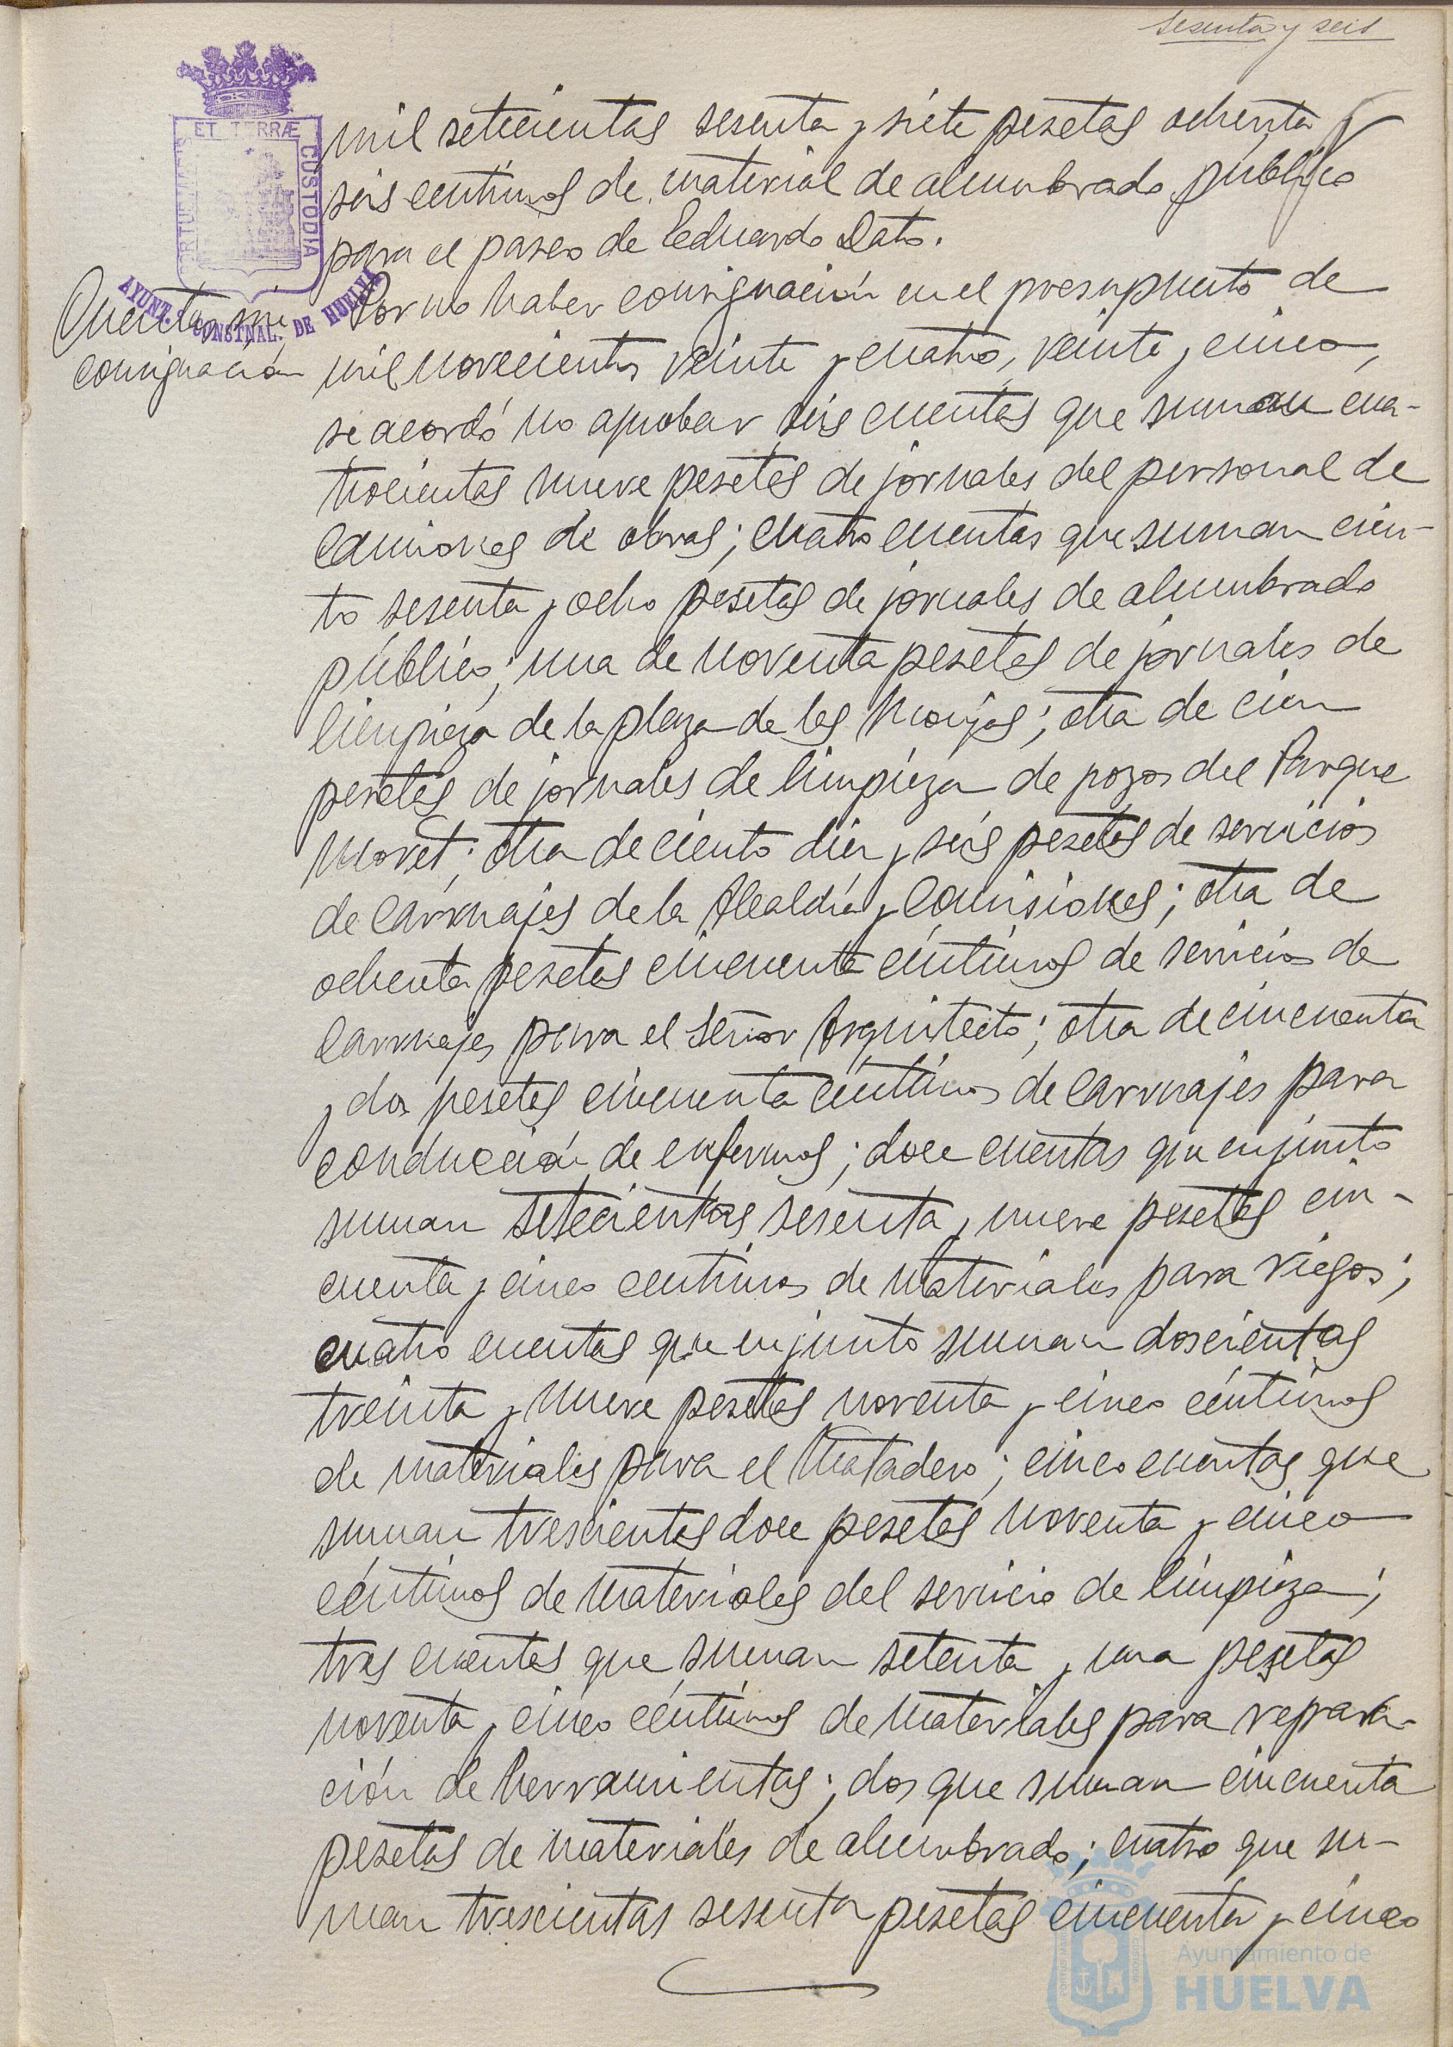 sesenta y seis
ET TERRÆ
CUSTODIA
AYUNT. CONSTNAL. DE HUELVA
mil setecientas sesenta y siete pesetas ochenta
seis centimos de material de alumbrado público
para el paseo de Eduardo Dato.
Cuentas sin
consignación
Por no haber consignación en el presupuesto de
mil novecientos veinte y cuatro, veinte y cinco,
se acordó no aprobar seis cuentas que suman cua-
trocientas nueve pesetas de jornales del personal de
camiones de obras; cuatro cuentas que suman cien-
to sesenta y ocho pesetas de jornales de alumbrado
público; una de noventa pesetas de jornales de
limpieza de la plaza de las Monjas; otra de cien
pesetas de jornales de limpieza de pozos del Parque
Moret; otra de ciento diez y seis pesetas de servicios
de carruajes de la Alcaldía y Comisiones; otra de
ochenta pesetas cincuenta céntimos de servicios de
carruajes para el Señor Arquitecto; otra de cincuenta
y dos pesetas cincuenta céntimos de carruajes para
conducción de enfermos; doce cuentas que en junto
suman setecientas sesenta y nueve pesetas cin-
cuenta y cinco centimos de materiales para riegos;
cuatro cuentas que en junto suman doscientas
treinta y nueve pesetas noventa y cinco céntimos
de materiales para el Matadero; cinco cuentas que
suman trescientas doce pesetas noventa y cinco
céntimos de materiales del servicio de limpieza;
tres cuentas que suman setenta y una pesetas
noventa y cinco céntimos de materiales para repara-
ción de herramientas; dos que suman cincuenta
pesetas de materiales de alumbrado; cuatro que su-
man trescientas sesenta pesetas cincuenta y cinco
Ayuntamiento de
HUELVA